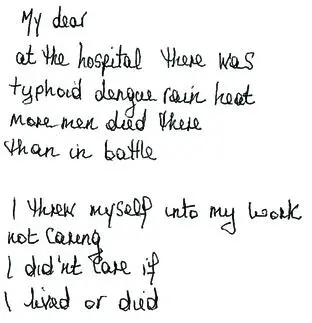 My dear
at the hospital there was
typhoid dengue rain heat
more men died there
than in battle
I threw myself into my work
not caring
I did'nt care if
I lived or died